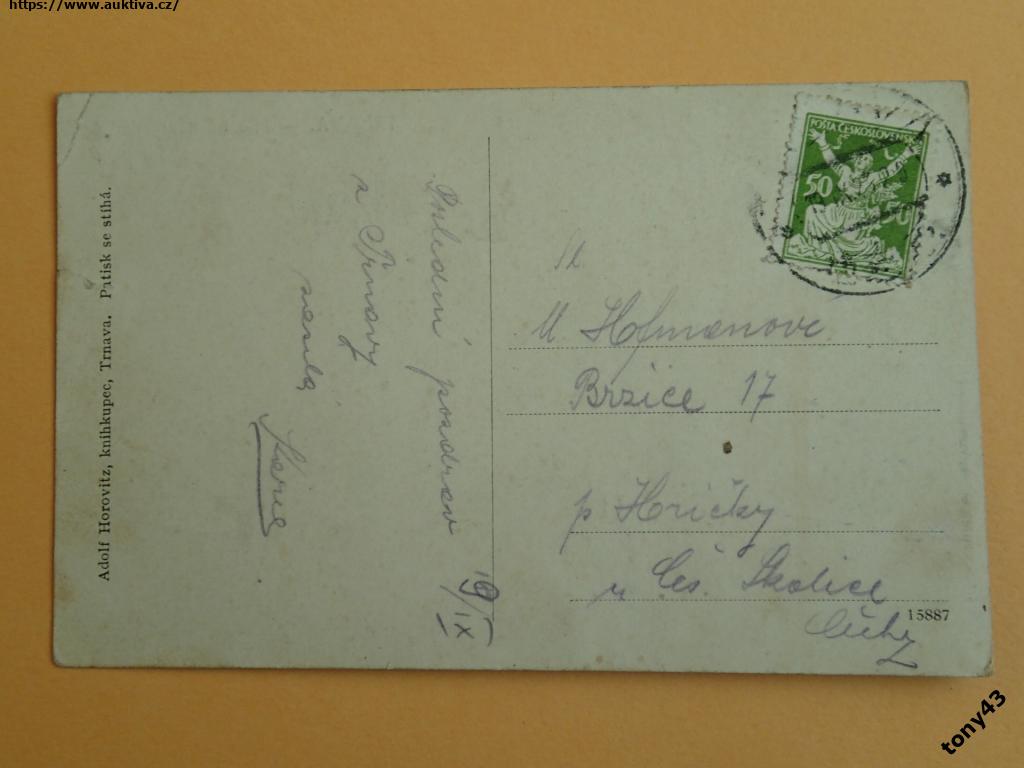 https://www.auktiva.cz/
Adolf Horovitz, knihkupec, Trnava. Patisk se stíhá.
pozdrav
z Trnavy
19/IX
POŠTA ČESKOSLOVENSKÁ
50
50
M Hofmanove
Brzice 17
p Hričky
u Čes. Skalice
Čechy
15887
tony43